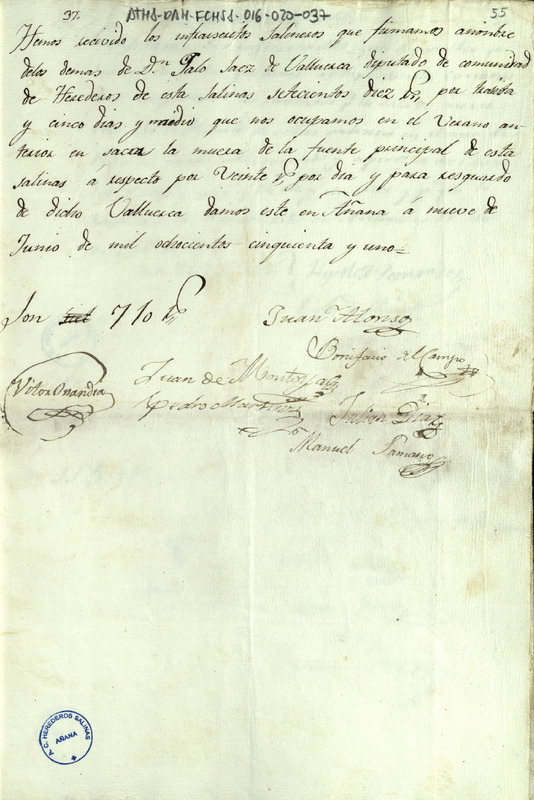 37.
ATHA-DAH-FCHSS-016-020-037
55
Hemos recivido los infraescritos Salineros que firmamos anombre
delos demas de Dn Galo Saez de Valluerca diputado de comunidad
de Herederos de esta Salinas setecientos diez rs, por treinta
y cinco dias y medio que nos ocupamos en el Verano an-
terior en sacar la muera de la fuente principal de esta
salinas á respecto por Veinte rs por dia y para resguardo
de dicho Valluerca damos este en Añana á nueve de
Junio de mil ochocientos cinquienta y uno=
Son 710 rs
Juan Alonso
Bonifacio del Campo
Vitor Onandia
Juan de Montoya
Pedro Martinez
Julian Diaz
Manuel Samano
C. HEREDEROS SALINAS
AÑANA